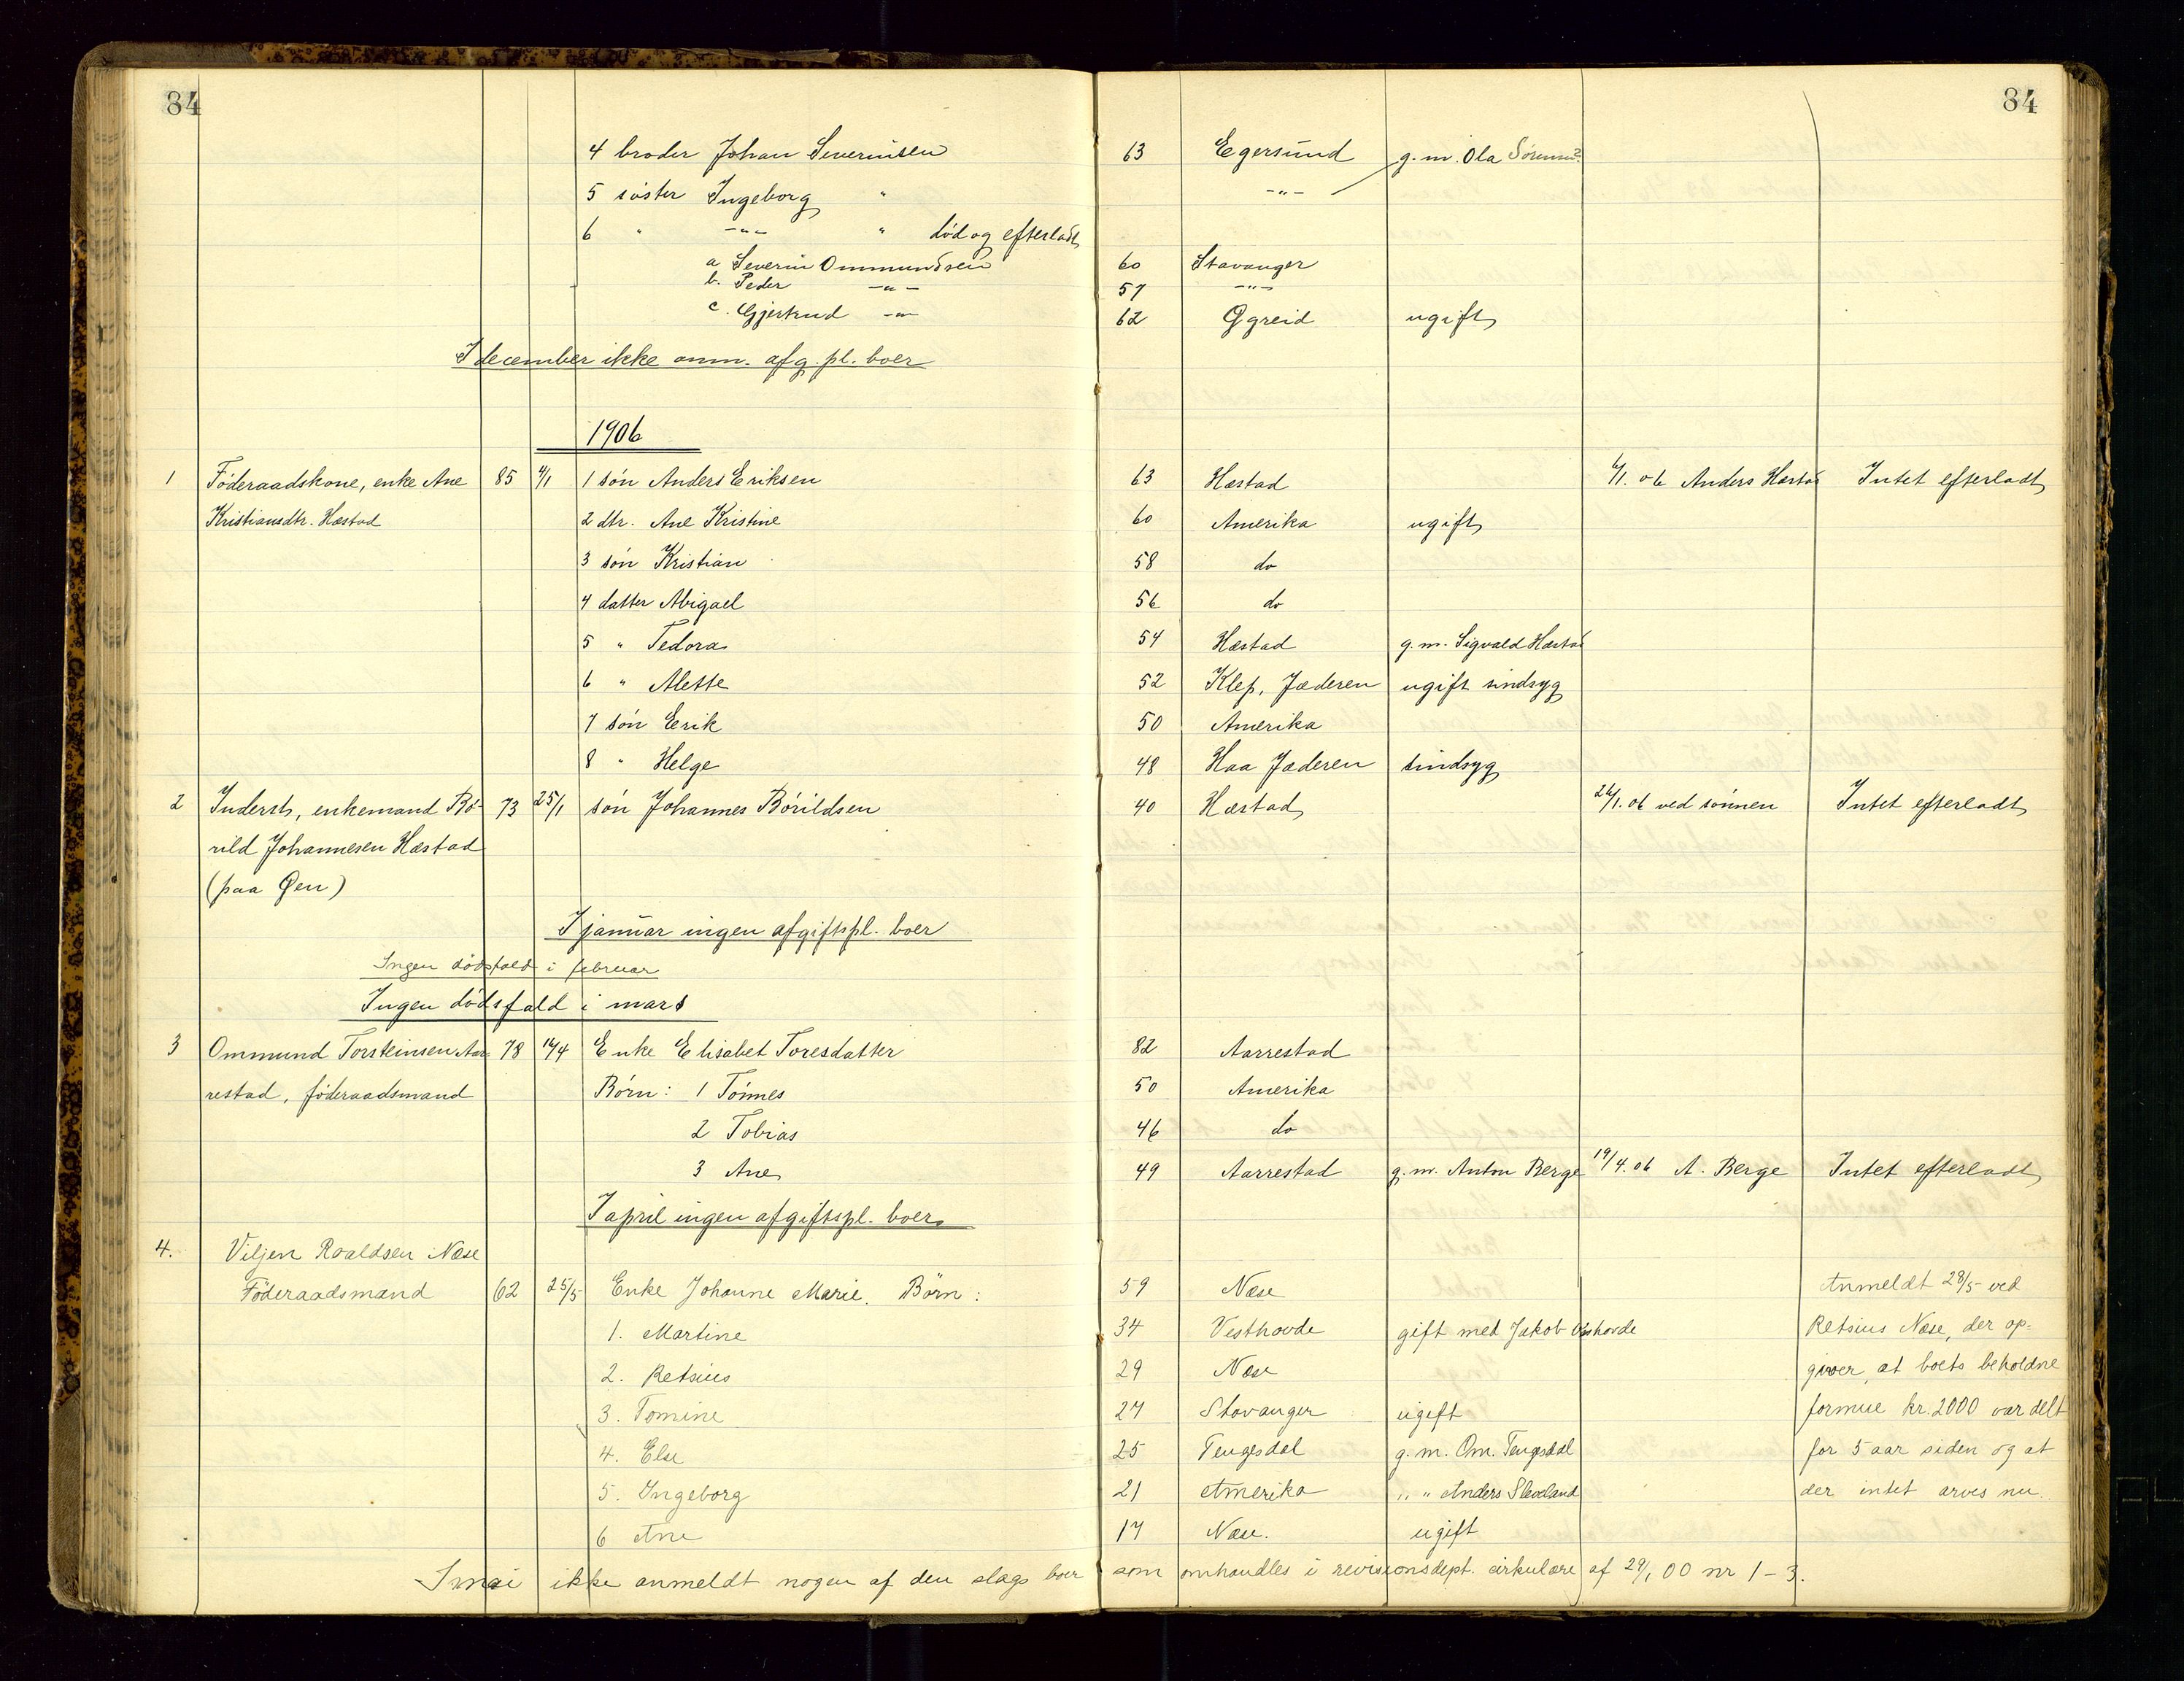 84 84
4 broder Johan Severinsen 63 Egersund g. m. Ola
5 søster Ingeborg " -"-
6 " -"- " død og efterladt
a Severin Ommundsen 60 Stavanger
b. Peder -"- 57 -"-
c. Gjertrud -"- 62 Øgreid ugift
I december ikke anm. afg. pl. boer
1906
1 Føderaadskone, enke Ane 85 4/1 1 søn Anders Eriksen 63 Hæstad 6/1. 06 Anders Hæstad Intet efterladt
Kristiansdtr. Hæstad 2 dtr. Ane Kristine 60 Amerika ugift
3 søn Kristian 58 do
4 datter Abigael 56 do
5 " Tedora 54 Hæstad g. m. Sigvald Hæstad
6 " Alette 52 Klep, Jæderen ugift sindsyg
7 søn Eerik 50 Amerika
8 " Helge 48 Haa Jæderen sindsyg
2 Inderst, enkemand Bø- 73 25/1 søn Johannes Børildsen 40 Hæstad 26/1. 06 ved sønnen Intet efterladt
rild Johannesen Hæstad
(paa Øen)
I januar ingen afgiftspl. boer
Ingen dødsfald i februar
Ingen dødsfald i mars
3 Ommund Torsteinsen Aar- 78 16/4 Enke Elisabet Toresdatter 82 Aarrestad
restad, føderaadsmand Børn: 1 Tønnes 50 Amerika
2 Tobias 46 do
3 Ane 49 Aarrestad g. m. Anton Berge 19/4. 06 A. Berge Intet efterladt
I april ingen afgiftspl. boer
4. Viljen Roaldsen Næse
Föderaadsmand 62 25/5 Enke Johanne Marie. Börn: 59 Næse Anmeldt 28/5 ved
1. Martine 34 Vesthovde gift med Jakob Vesthovde Retsius Næse, der op-
2. Retsius 29 Næse giver, at boets beholdne
3. Tomine 27 Stavanger ugift formue kr. 2000 var delt
4. Else 25 Tengesdal g. m. Om. Tengesdal for 5 aar siden og at
5. Ingeborg 21 Amerika " " Anders Sleveland der intet arves nu.
6 Ane 17 Næse. ugift
I mai ikke anmeldt nogen af den slags boer som omhandles i revisionsdept. cirkulære af 29/1 00 nr 1-3.